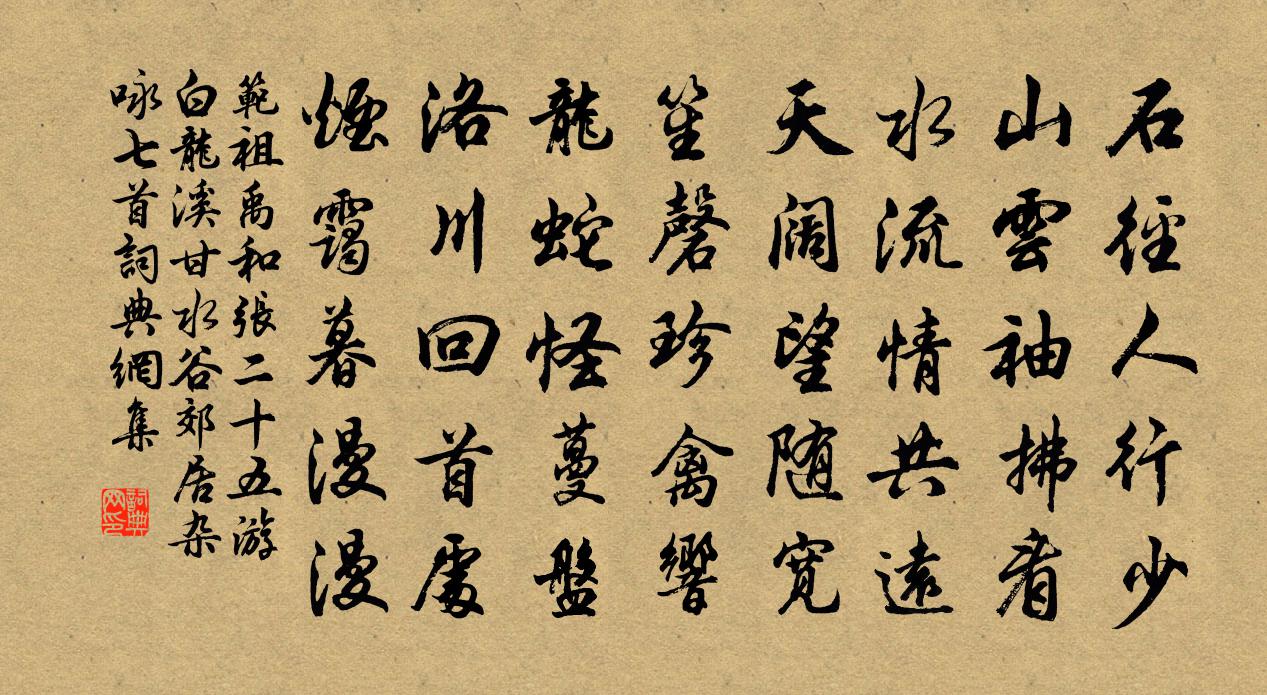 石徑人行少
山雲袖拂看
水流情共遠
天闊望随寬
笙磬珍禽響
龍蛇怪蔓盤
洛川回首處
煙靄暮漫漫
範祖禹和張二十五游
白龍溪甘水谷郊居杂
咏七首詞典網集
詞典
网印